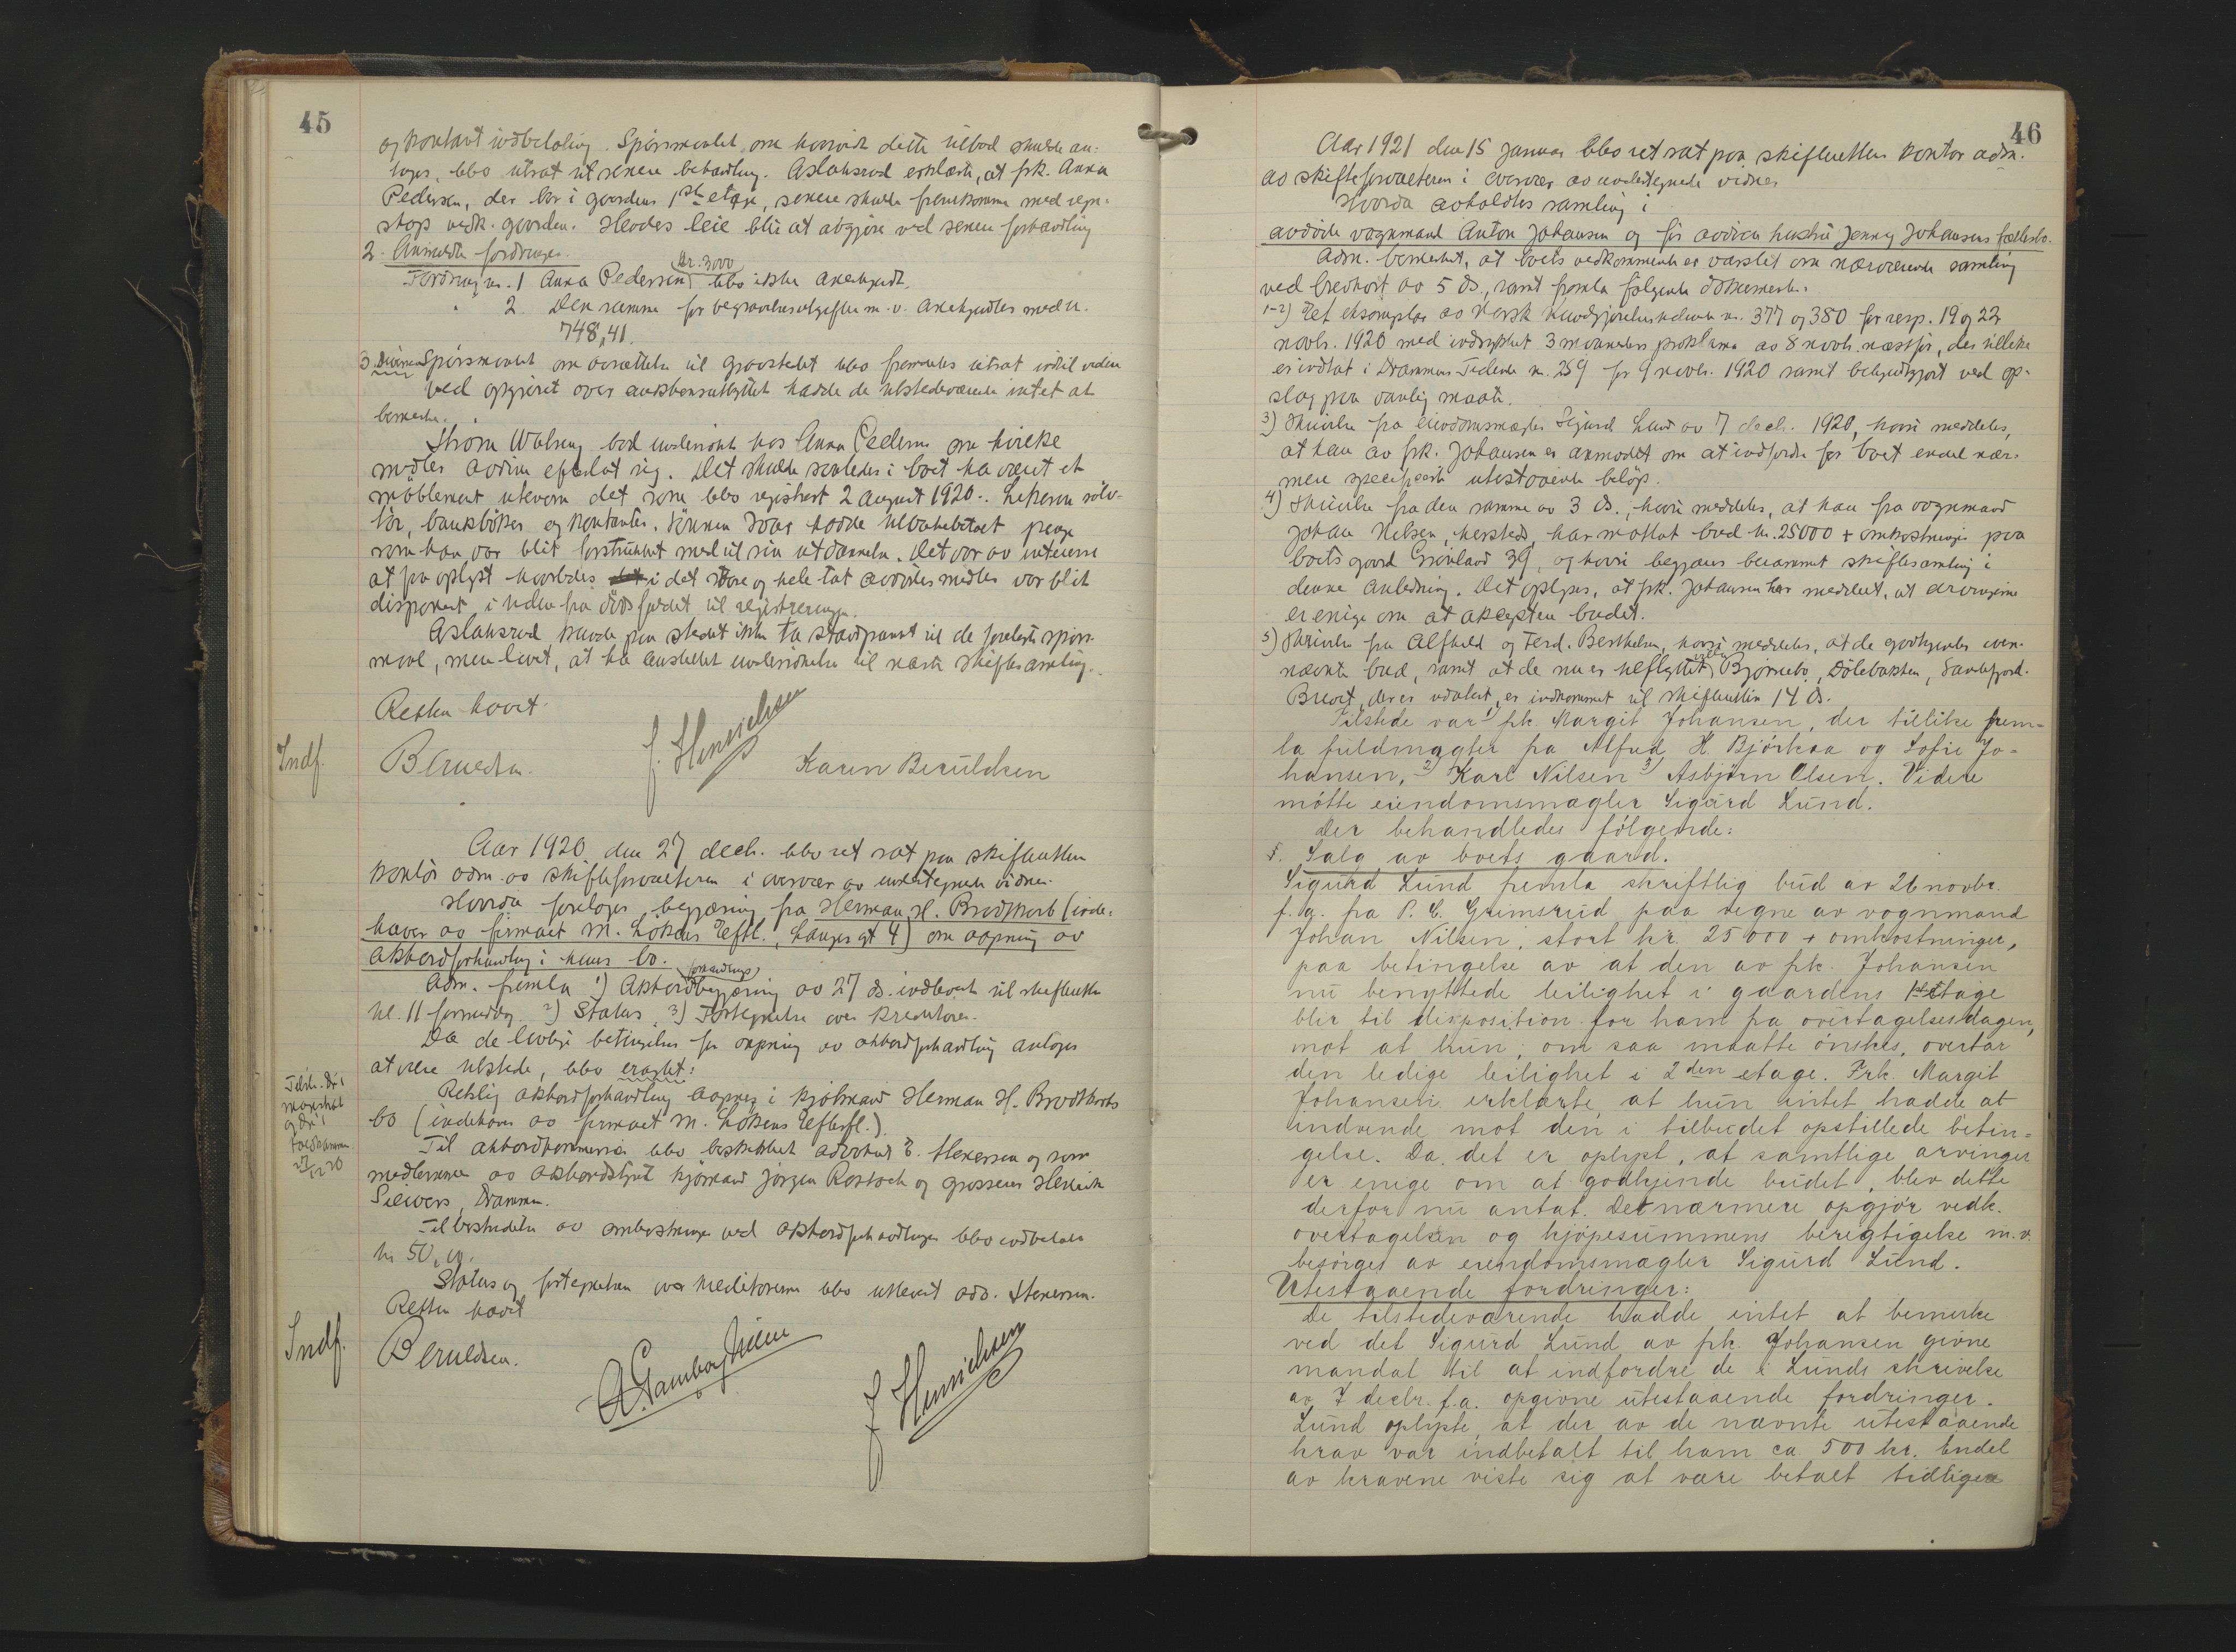 45
og kontant indbetaling. Spörsmaalet om hvorvidt dette tilbud skulde an-
tages, blev utsat til senere behandling. Aslaksrud erklærte, at frk. Anna
Pedersen, der bor i gaardens 1ste etage, senere skulde fremkomme med
vedk. gaarden. Hendes leie blir at avgjöre ved senere forhandling
2. Anmeldte fordringer.
Fordring nr. 1 Anna Pedersen kr. 3000 blev ikke anerkjendt.
" 2. Den samme for begravelsesutgifter m.v. anerkjendtes med kr.
748,41.
3. Spörsmaalet om avsættelse til gravstedet blev fremdeles utsat indtil videre
Ved opgjöret over auktionsutbyttet hadde de tilstedeværende intet at
bemerke.
Thora bad undersökt hos Anna Pedersen om hvilke
midler avdöde efterlot sig. Det skulde saaledes i boet ha været et
möblement utenom det som blev registrert 2 august 1920. Likesom sölv-
töi, bankböker og kontanter. hadde tilbakebetalt penge
som han var blit forstrukket med til sin utdannelse. Det var av interesse
at faa oplyst hvorledes i det store og hele tat avdödes midler var blit
disponert i tiden fra dödsfaldet til registreringen.
Aslaksrud kunde paa stedet ikke ta standpunkt til de forelagte spörs-
maal, men lovet, at ha anstillet undersökelse til næste skiftesamling.
Retten hævet.
Indf.
Beruldsen. J. Henrichsen Karen Beruldsen
Aar 1920 den 27 decb. blev ret sat paa skifterettens
kontor adm. av skifteforvalteren i overvær av undertegnede vidner.
Hvorda foretoges begjæring fra Herman H. Brodtkorb (inde-
haver av firmaet M. Lökens Eftfl., Hauges gt 4) om aapning av
akkordforhandling i hans bo.
Adm. fremla 1) Akkordforhandlingsbegjæring av 27 ds. indlevert til skifteretten
kl. 11 formiddag. 2) Status. 3) Fortegnelse over kreditorer.
Da de lovlige betingelser for aapning av akkordforhandling antages
at være tilstede, blev eragtet:
Retslig akkordforhandling aapnes i kjöbmand Herman H. Brodtkorbs
bo (indehaver av firmaet M. Lökens Efterfl.).
Til akkordkommissær blev beskikket advokat E. Stenersen og som
medlemmer av akkordstyret kjöbmand Jörgen Rostock og grosserer Henrik
Siewers, Drammen.
Til bestridelse av omkostninger ved akkordforhandlingen blev indbetalt
kr 50,00.
Status og fortegnelsen over kreditorerne blev utlevert adv. Stenersen.
Retten hævet
Indf.
Beruldsen. J. Henrichsen
46
Aar 1921 den 15 januar blev ret sat paa skifterettens kontor adm.
av skifteforvalteren i overvær av undertegnede vidner
Hvorda avholdtes samling i
avdöde vognmand Anton Johansen og för avdöde hustru Jenny Johansens fællesbo.
Adm. bemerket, at boets vedkommende er varslet om nærværende samling
ved brevkort av 5 ds., samt fremla fölgende dokumenter:
1-2) Et eksemplar av Norsk Kundgjörelsestidende nr. 377 og 380 for resp. 19 og 22
novb. 1920 med indrykket 3 maaneders proklama av 8 novb. næstför, der tillike
er indtat i Drammens Tidende nr. 259 for 9 novb. 1920 samt bekjendtgjort ved op-
slag paa vanlig maate.
3) Skrivelse fra eiendomsmægler Sigurd Lund av 7 decb. 1920, hvori meddeles,
at han av frk. Johansen er anmodet om at indfordre for boet endel nær-
mere specificerte utestaaende belöp.
4) Skrivelse fra den samme av 3 ds., hvori meddeles, at han fra vognmand
Johan Nilsen, hersteds, har mottat bud kr. 25000 + omkostninger paa
boets gaard Grönland 39, og hvori begjæres berammet skiftesamling i
denne anledning. Det oplyses, at frk. Johansen har meddelt, at arvingerne
er enige om at akceptere budet.
5) Skrivelse fra Alfhild og Ferd. Berthelsen, hvori meddeles, at de godkjender oven-
nævnte bud, samt at de nu er utflyttet Björnebo, Dölebakken, Sandefjord.
Brevet, der er udatert, er indkommet til skifteretten 14 ds.
Tilstede var 1) frk. Margit Johansen, der tillike frem-
la fuldmagter fra Alfred H. Björkaa og Sofie Jo-
hansen, 2) Karl Nilsen 3) Asbjörn Olsen. Videre
mötte eiendomsmægler Sigurd Lund.
Der behandledes fölgende:
1. Salg av boets gaard.
Sigurd Lund fremla skriftlig bud av 26 novbr.
f.a. fra P. C. Grimsrud paa vegne av vognmand
Johan Nilsen, stort kr. 25000 + omkostninger,
paa betingelse av at den av frk. Johansen
nu benyttede leilighet i gaardens 1ste etage
blir til disposition for ham fra overtagelsesdagen,
mot at hun, om saa maatte önskes, overtar
den ledige leilighet i 2den etage. Frk. Margit
Johansen erklærte, at hun intet hadde at
indvende mot den i tilbudet opstillede betin-
gelse. Da det er oplyst, at samtlige arvinger
er enige om at godkjende budet, blev dette
derfor nu antat. Det nærmere opgjör vedk.
overtagelsen og kjöpesummens berigtigelse m.v.
besörges av eiendomsmægler Sigurd Lund.
Utestaaende fordringer:
De tilstedeværende hadde intet at bemerke
ved det Sigurd Lund av frk. Johansen givne
mandat til at indfordre de i Lunds skrivelse
av 7 decbr. f.a. opgivne utestaaende fordringer.
Lund oplyste, at der av de nævnte utestaaende
krav var indbetalt til ham ca 500 kr. Endel
av kravene viste sig at være betalt tidligere